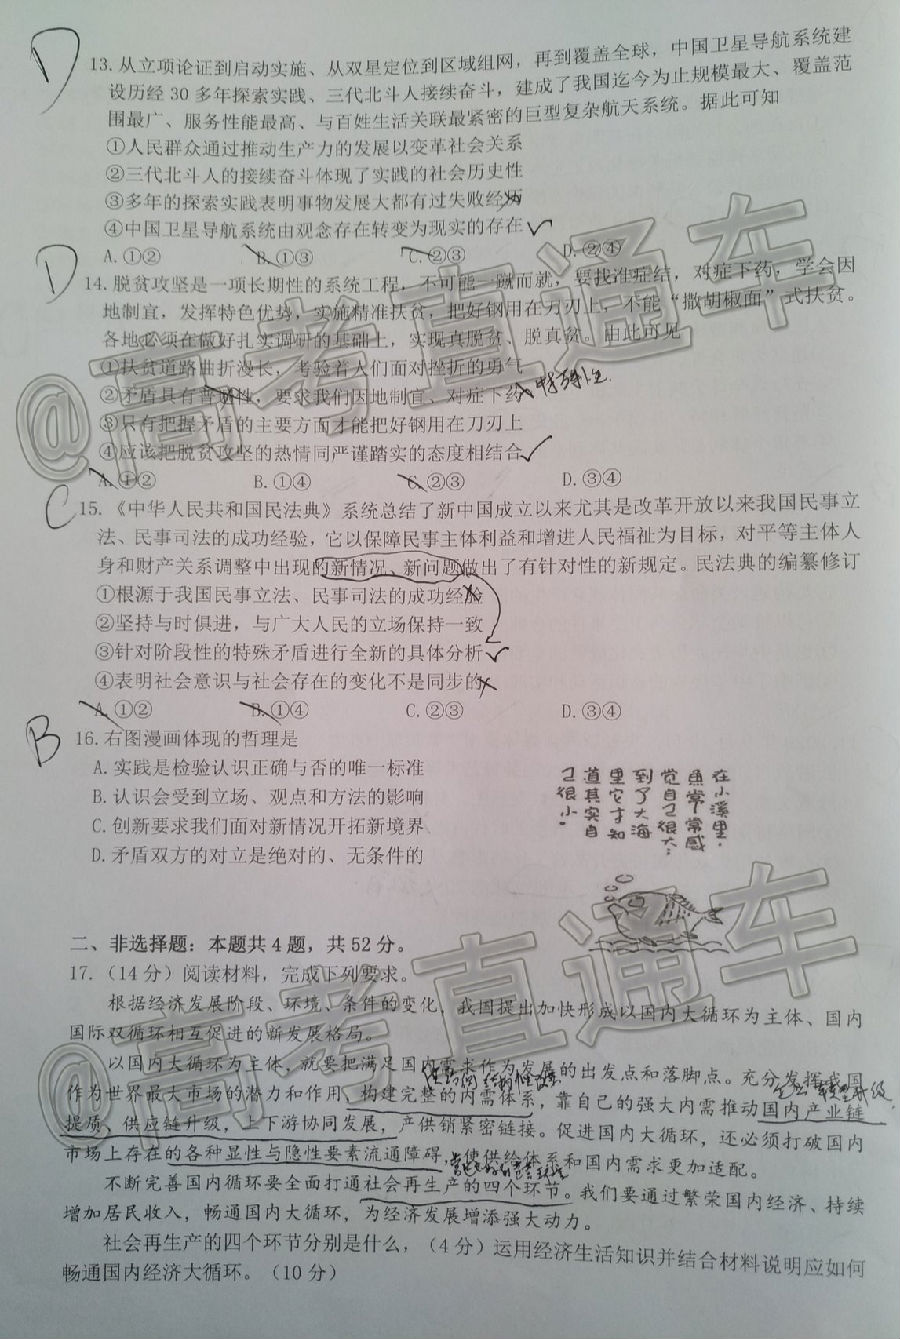 D
13.从立项论证到启动实施、从双星定位到区域组网，再到覆盖全球，中国卫星导航系统建
设历经30多年探索实践、三代北斗人接续奋斗，建成了我国迄今为止规模最大、覆盖范
围最广、服务性能最高、与百姓生活关联最紧密的巨型复杂航天系统。据此可知
①人民群众通过推动生产力的发展以变革社会关系
②三代北斗人的接续奋斗体现了实践的社会历史性
③多年的探索实践表明事物发展大都有过失败经历
④中国卫星导航系统由观念存在转变为现实的存在
A.①② B.①③ C.②③ D.②④
D
14.脱贫攻坚是一项长期性的系统工程，不可能一蹴而就，要找准症结，对症下药，学会因
地制宜，发挥特色优势，实施精准扶贫，把好钢用在刀刃上，不能“撒胡椒面”式扶贫。
各地必须在做好扎实调研的基础上，实现真脱贫、脱真贫。由此可见
①扶贫道路曲折漫长，考验着人们面对挫折的勇气
②矛盾具有普遍性，要求我们因地制宜、对症下药 特殊性
③只有把握矛盾的主要方面才能把好钢用在刀刃上
④应该把脱贫攻坚的热情同严谨踏实的态度相结合
A.①② B.①④ C.②③ D.③④
C
15.《中华人民共和国民法典》系统总结了新中国成立以来尤其是改革开放以来我国民事立
法、民事司法的成功经验，它以保障民事主体利益和增进人民福祉为目标，对平等主体人
身和财产关系调整中出现的新情况、新问题做出了有针对性的新规定。民法典的编纂修订
①根源于我国民事立法、民事司法的成功经验
②坚持与时俱进，与广大人民的立场保持一致
③针对阶段性的特殊矛盾进行全新的具体分析
④表明社会意识与社会存在的变化不是同步的
A.①② B.①④ C.②③ D.③④
B
16.右图漫画体现的哲理是
A.实践是检验认识正确与否的唯一标准
B.认识会受到立场、观点和方法的影响
C.创新要求我们面对新情况开拓新境界
D.矛盾双方的对立是绝对的、无条件的
在小溪里，
鱼常常感
觉自己很大；
到了大海
里它才知
道其实自
己很小。
二、非选择题：本题共4题，共52分。
17.（14分）阅读材料，完成下列要求。
根据经济发展阶段、环境、条件的变化，我国提出加快形成以国内大循环为主体、国内
国际双循环相互促进的新发展格局。
以国内大循环为主体，就要把满足国内需求作为发展的出发点和落脚点。充分发挥我国
作为世界最大市场的潜力和作用，构建完整的内需体系，靠自己的强大内需推动国内产业链
提质、供应链升级，上下游协同发展，产供销紧密链接。促进国内大循环，还必须打破国内
市场上存在的各种显性与隐性要素流通障碍，使供给体系和国内需求更加适配。
不断完善国内循环要全面打通社会再生产的四个环节。我们要通过繁荣国内经济、持续
增加居民收入，畅通国内大循环，为经济发展增添强大动力。
社会再生产的四个环节分别是什么，（4分）运用经济生活知识并结合材料说明应如何
畅通国内经济大循环。（10分）
@高考直通车
@高考直通车